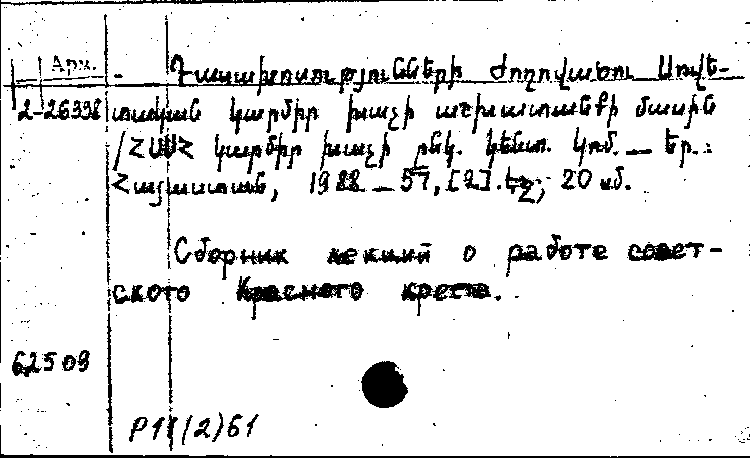 Арм.
- Դասախոսությունների ժողովածու Սովե-
2-26338 տական կարմիր խաչի աշխատանքի մասին
/ՀՍՍՀ կարմիր խաչի ընկ. կենտ. կոմ. — Եր.:
Հայաստան, 1988 — 57, [2] էջ; 20 սմ.
Сборник лекций о работе совет-
ского Красного креста.
62509
P11(2)61